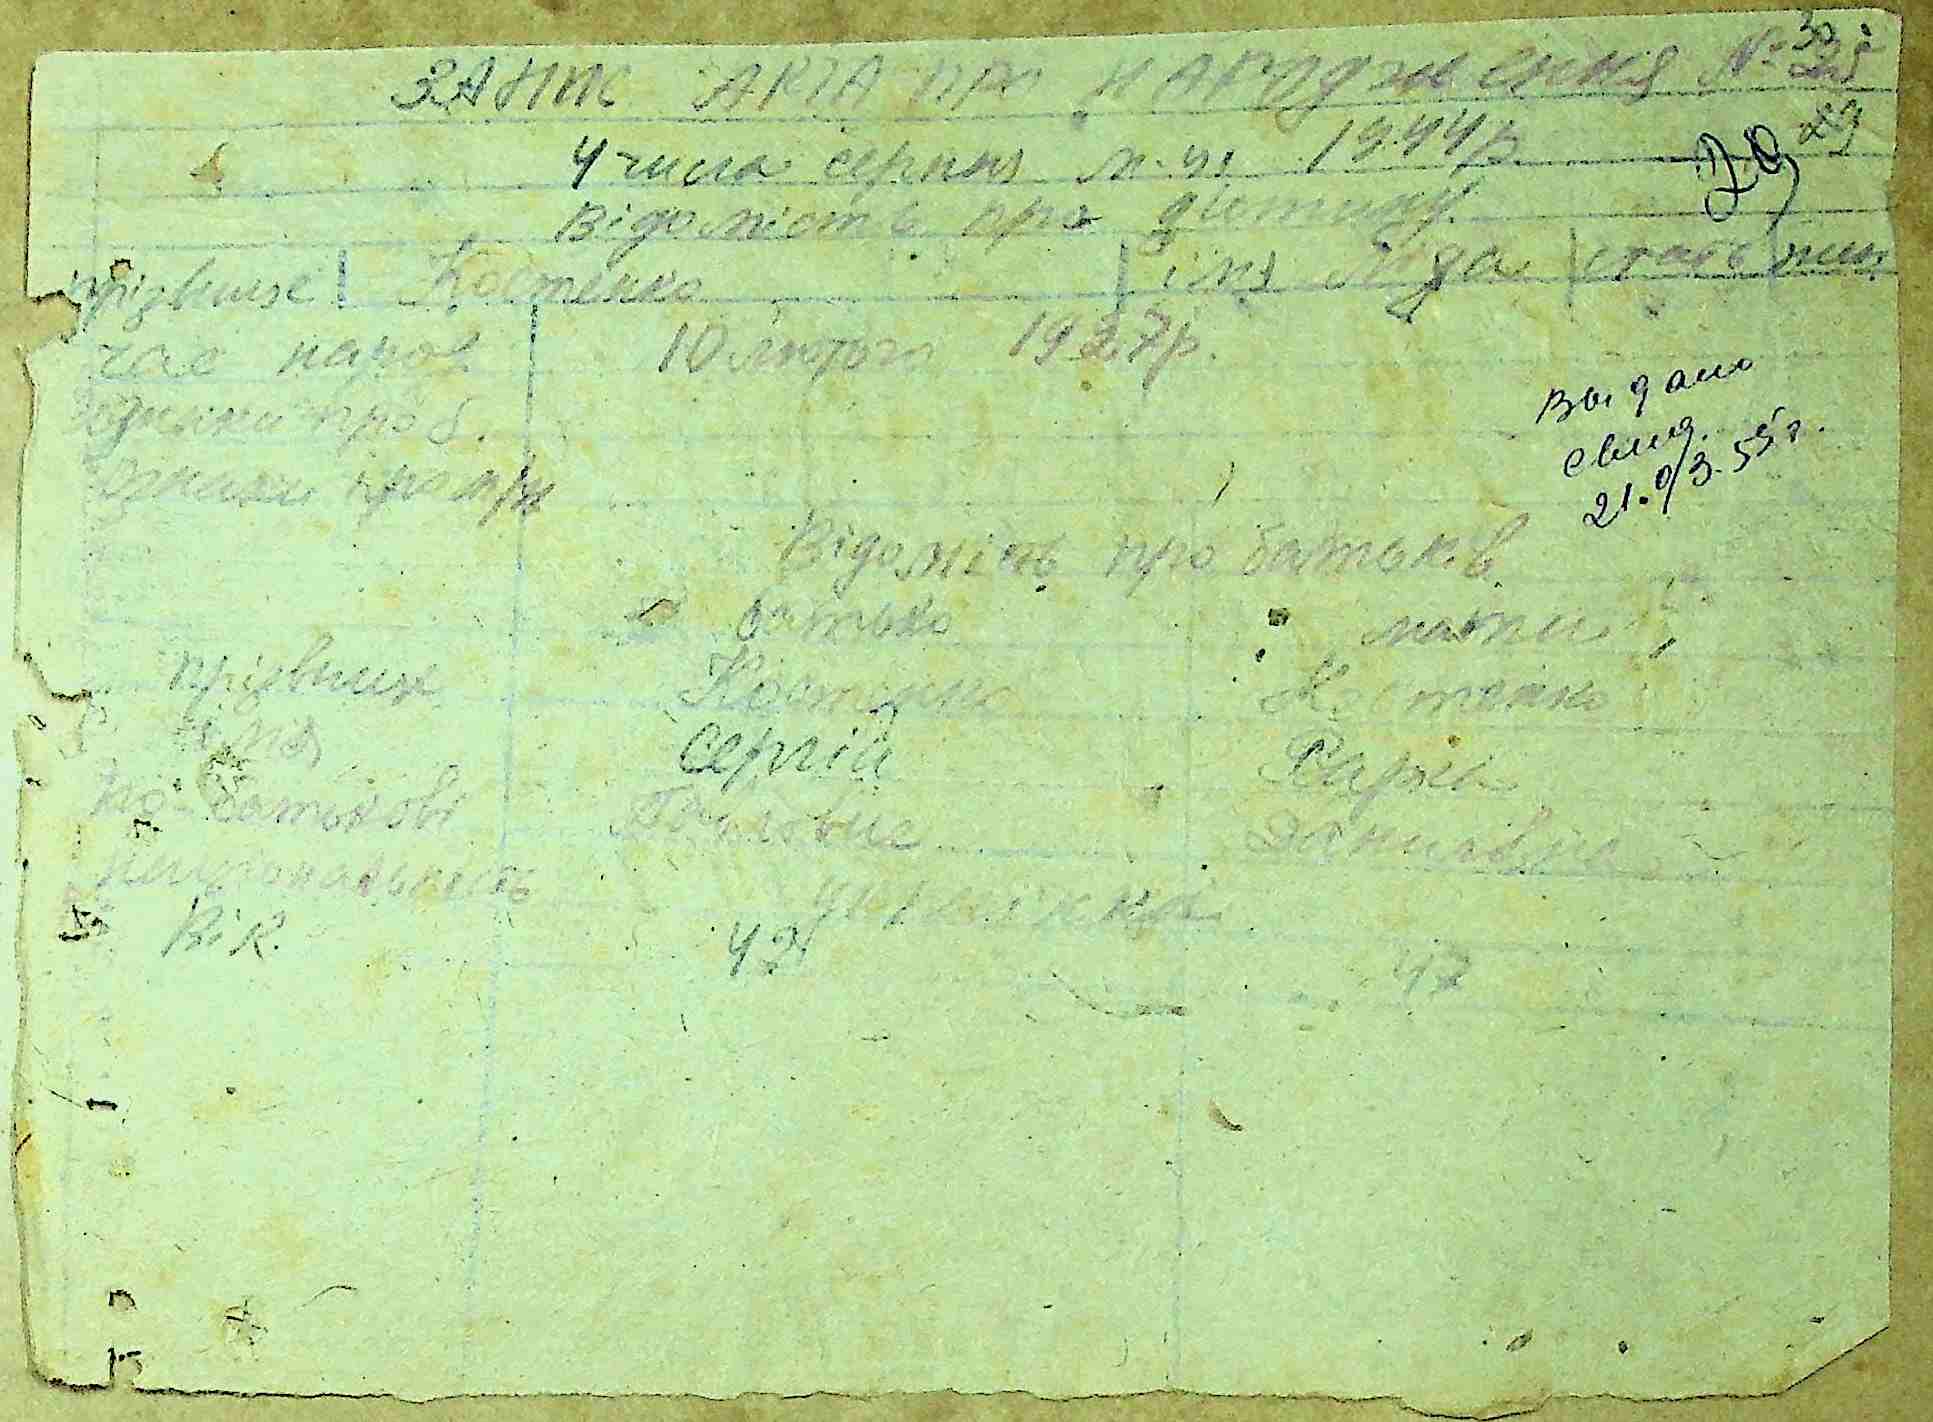 ЗАПИС АКТА ПРО НАРОДження № 30
29
4 числа серпня м-ця 1944 р.
Відомість про дитину
прізвище Костенко імя Ліда стать жін
час народ 10 лютого 1927 р.
Видано
свид.
21.03.55 г.
Відомість про батьків
батько мати
прізвище Костенко Костенко
імя Сергій
по-батькові Павлович Данилівна
національність українка
Вік. 42 42